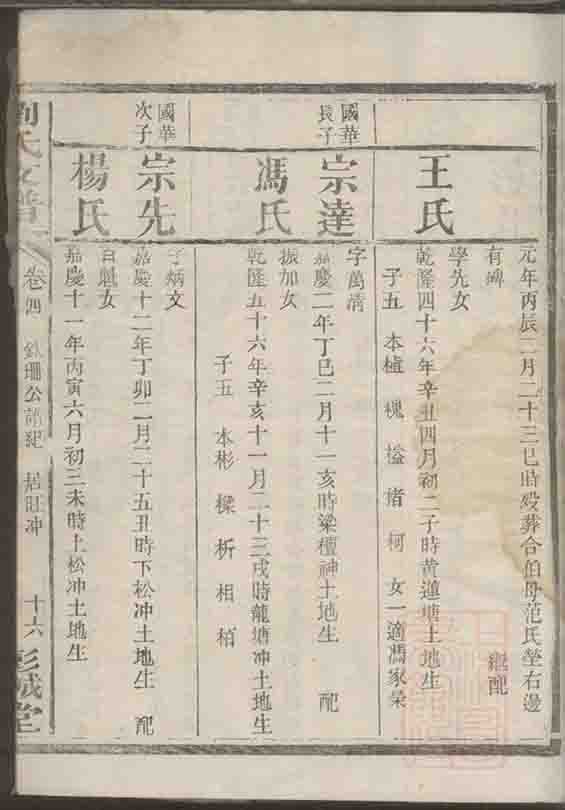 元年丙辰二月二十三巳時歿葬合伯母范氏塋右邊
有碑 繼配
王氏
學先女
乾隆四十六年辛丑四月初二子時黃蓮塘土地生
子五 本植 槐 溢 楮 柯 女一適馮家榮
國華
長子
宗達
字萬清
嘉慶二年丁巳二月十一亥時梁檀神土地生 配
馮氏
振加女
乾隆五十六年辛亥十一月二十三戌時龍塘冲土地生
子五 本彬 樑 析 相 栢
國華
次子
宗先
字炳文
嘉慶十二年丁卯二月二十五丑時下松冲土地生 配
楊氏
自魁女
嘉慶十一年丙寅六月初三未時上松冲土地生
劉氏支譜 卷四 珊公 居旺冲 十六 彭城堂